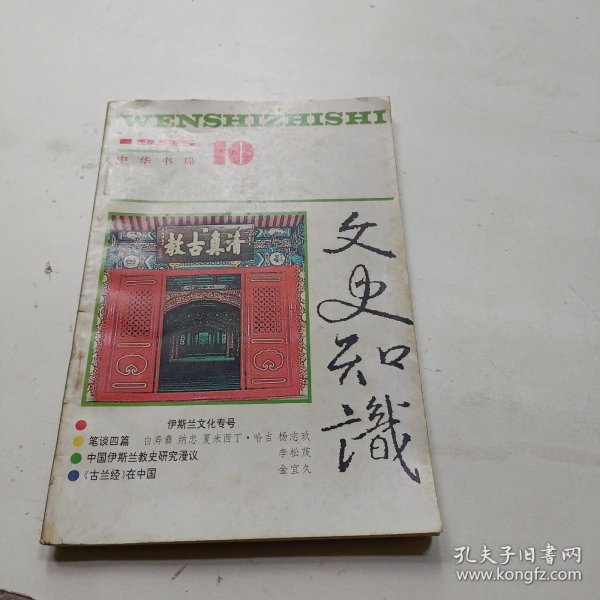 WENSHIZHISHI
中华书局
10
清真古教
文史知識
伊斯兰文化专号
笔谈四篇 白寿彝 纳忠 夏米西丁·哈吉 杨志玖
中国伊斯兰教史研究漫议 李松茂
《古兰经》在中国 金宜久
孔夫子旧书网
www.kongfz.com